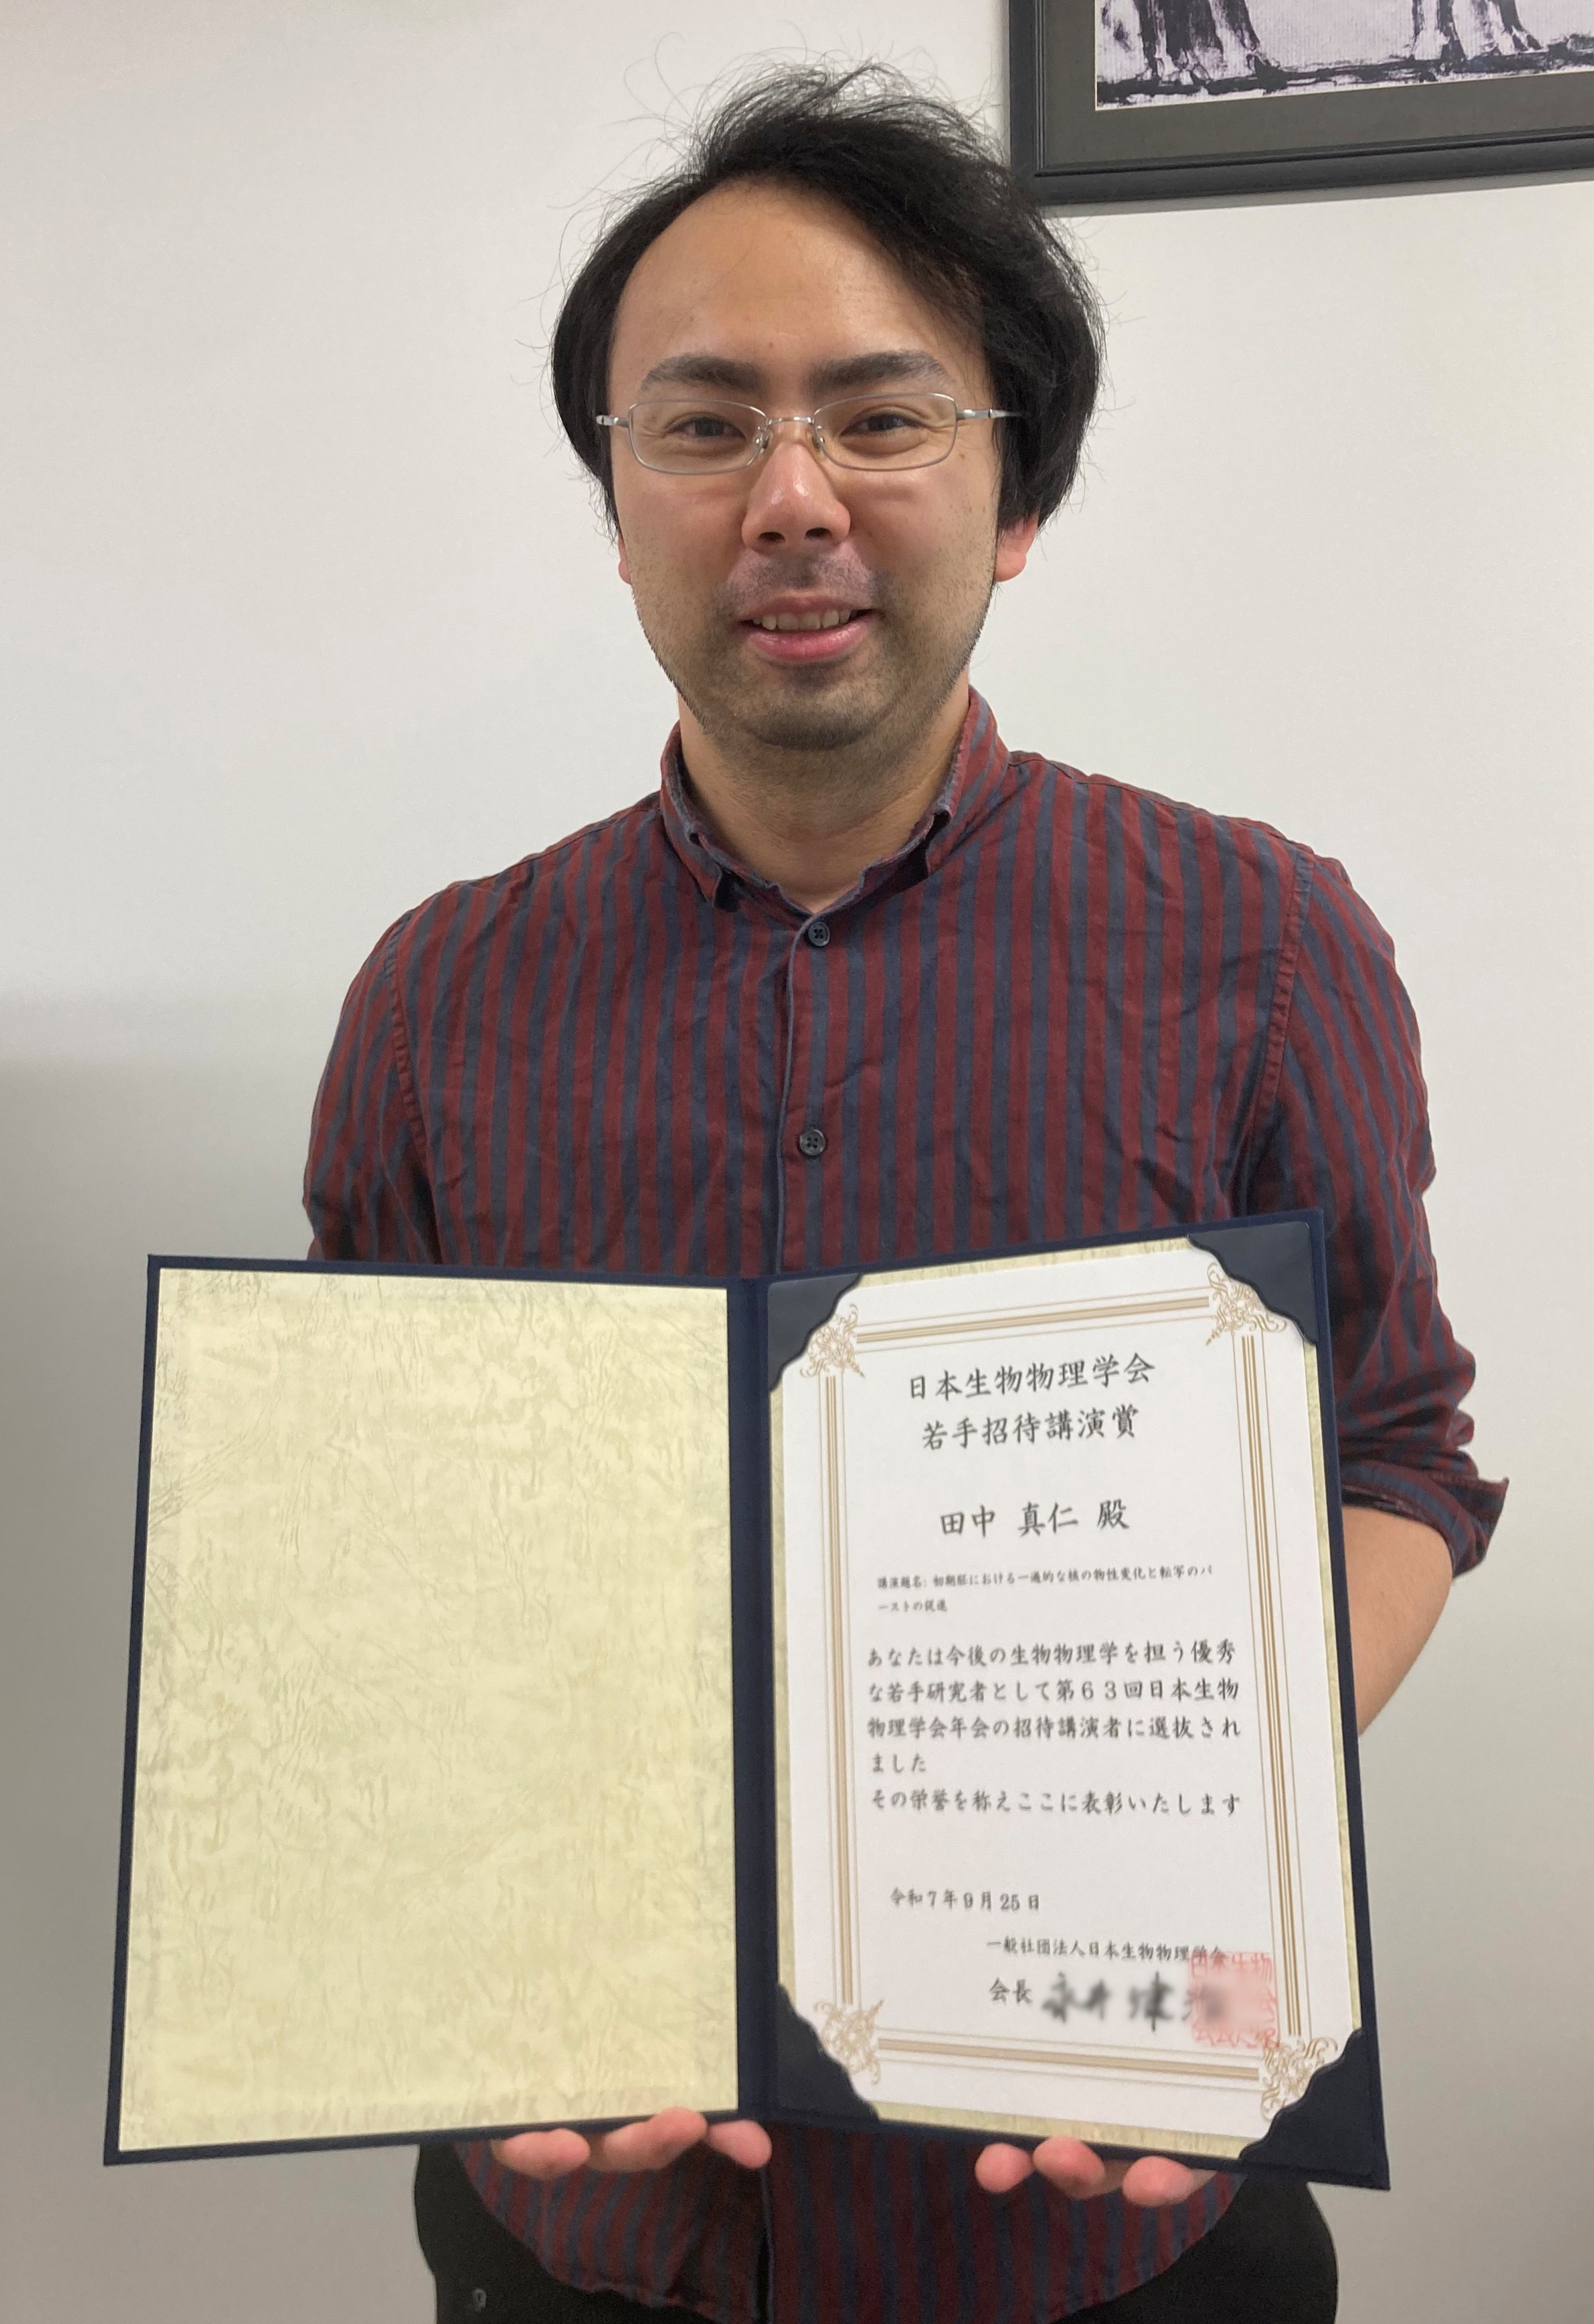 日本生物物理学会
若手招待講演賞
田中 真仁 殿
講演題名: 初期胚における一過的な核の物性変化と転写のバ
ーストの促進
あなたは今後の生物物理学を担う優秀
な若手研究者として第６３回日本生物
物理学会年会の招待講演者に選抜され
ました
その栄誉を称えここに表彰いたします
令和7年9月25日
一般社団法人日本生物物理学会
会長